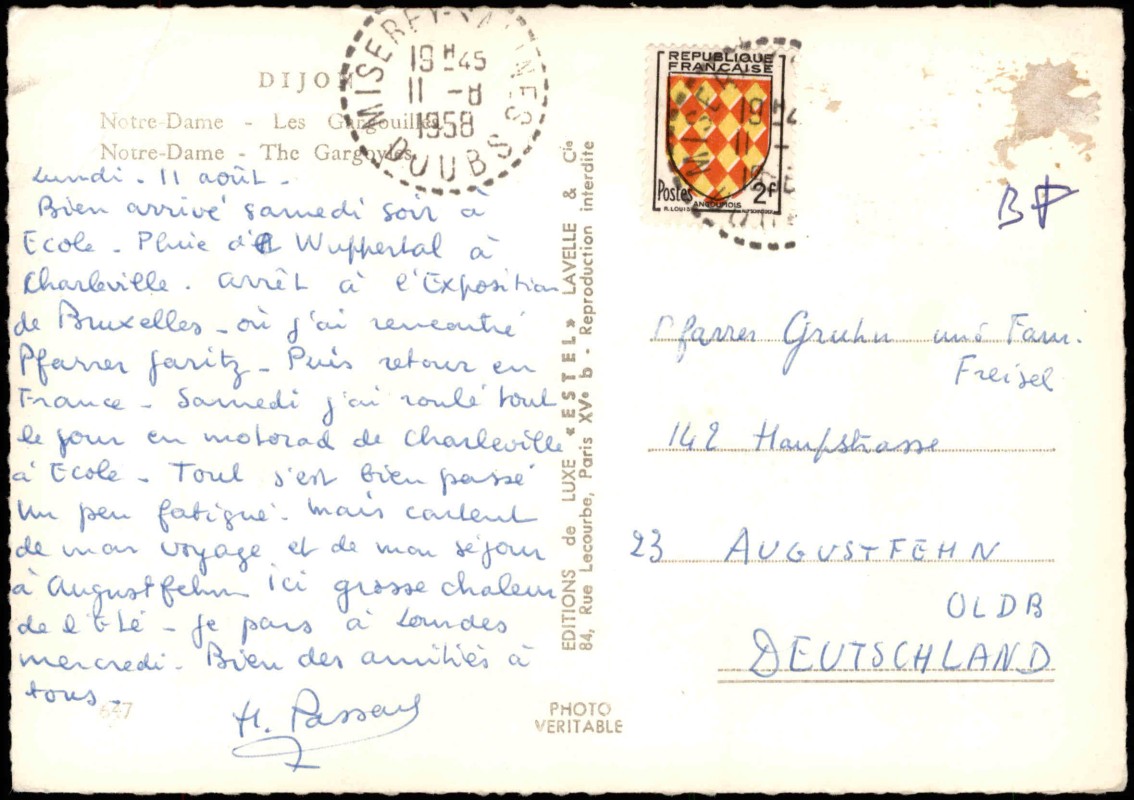 DIJON
Notre-Dame - Les Gargouilles
Notre-Dame - The Gargoyles
MISEREY-SALINES
19H45
11 -8
1958
DOUBS
Lundi. 11 août -
Bien arrivé samedi soir à
Ecole - Pluie de Wuppertal à
Charleville. arrêt à l'Exposition
de Bruxelles - où j'ai rencontré
Pfarrer Jaritz - Puis retour en
France - Samedi j'ai roulé tout
le jour en motorad de Charleville
à Ecole - Tout s'est bien passé
un peu fatigué - mais content
de mon voyage et de mon séjour
à Augustfehn ici grosse chaleur
de l'Eté - je pars à Lourdes
mercredi. Bien des amitiés à
tous -
647
H. Passard
EDITIONS de LUXE « ESTEL » LAVELLE & Cie
84, Rue Lecourbe, Paris XVe b - Reproduction interdite
PHOTO
VERITABLE
REPUBLIQUE
FRANÇAISE
Postes 2F
ANGOUMOIS
R. LOUIS
Pfarrer Gruhn und Fam.
Freisel
142 Haupstrasse
23 AUGUSTFEHN
OLDB
DEUTSCHLAND